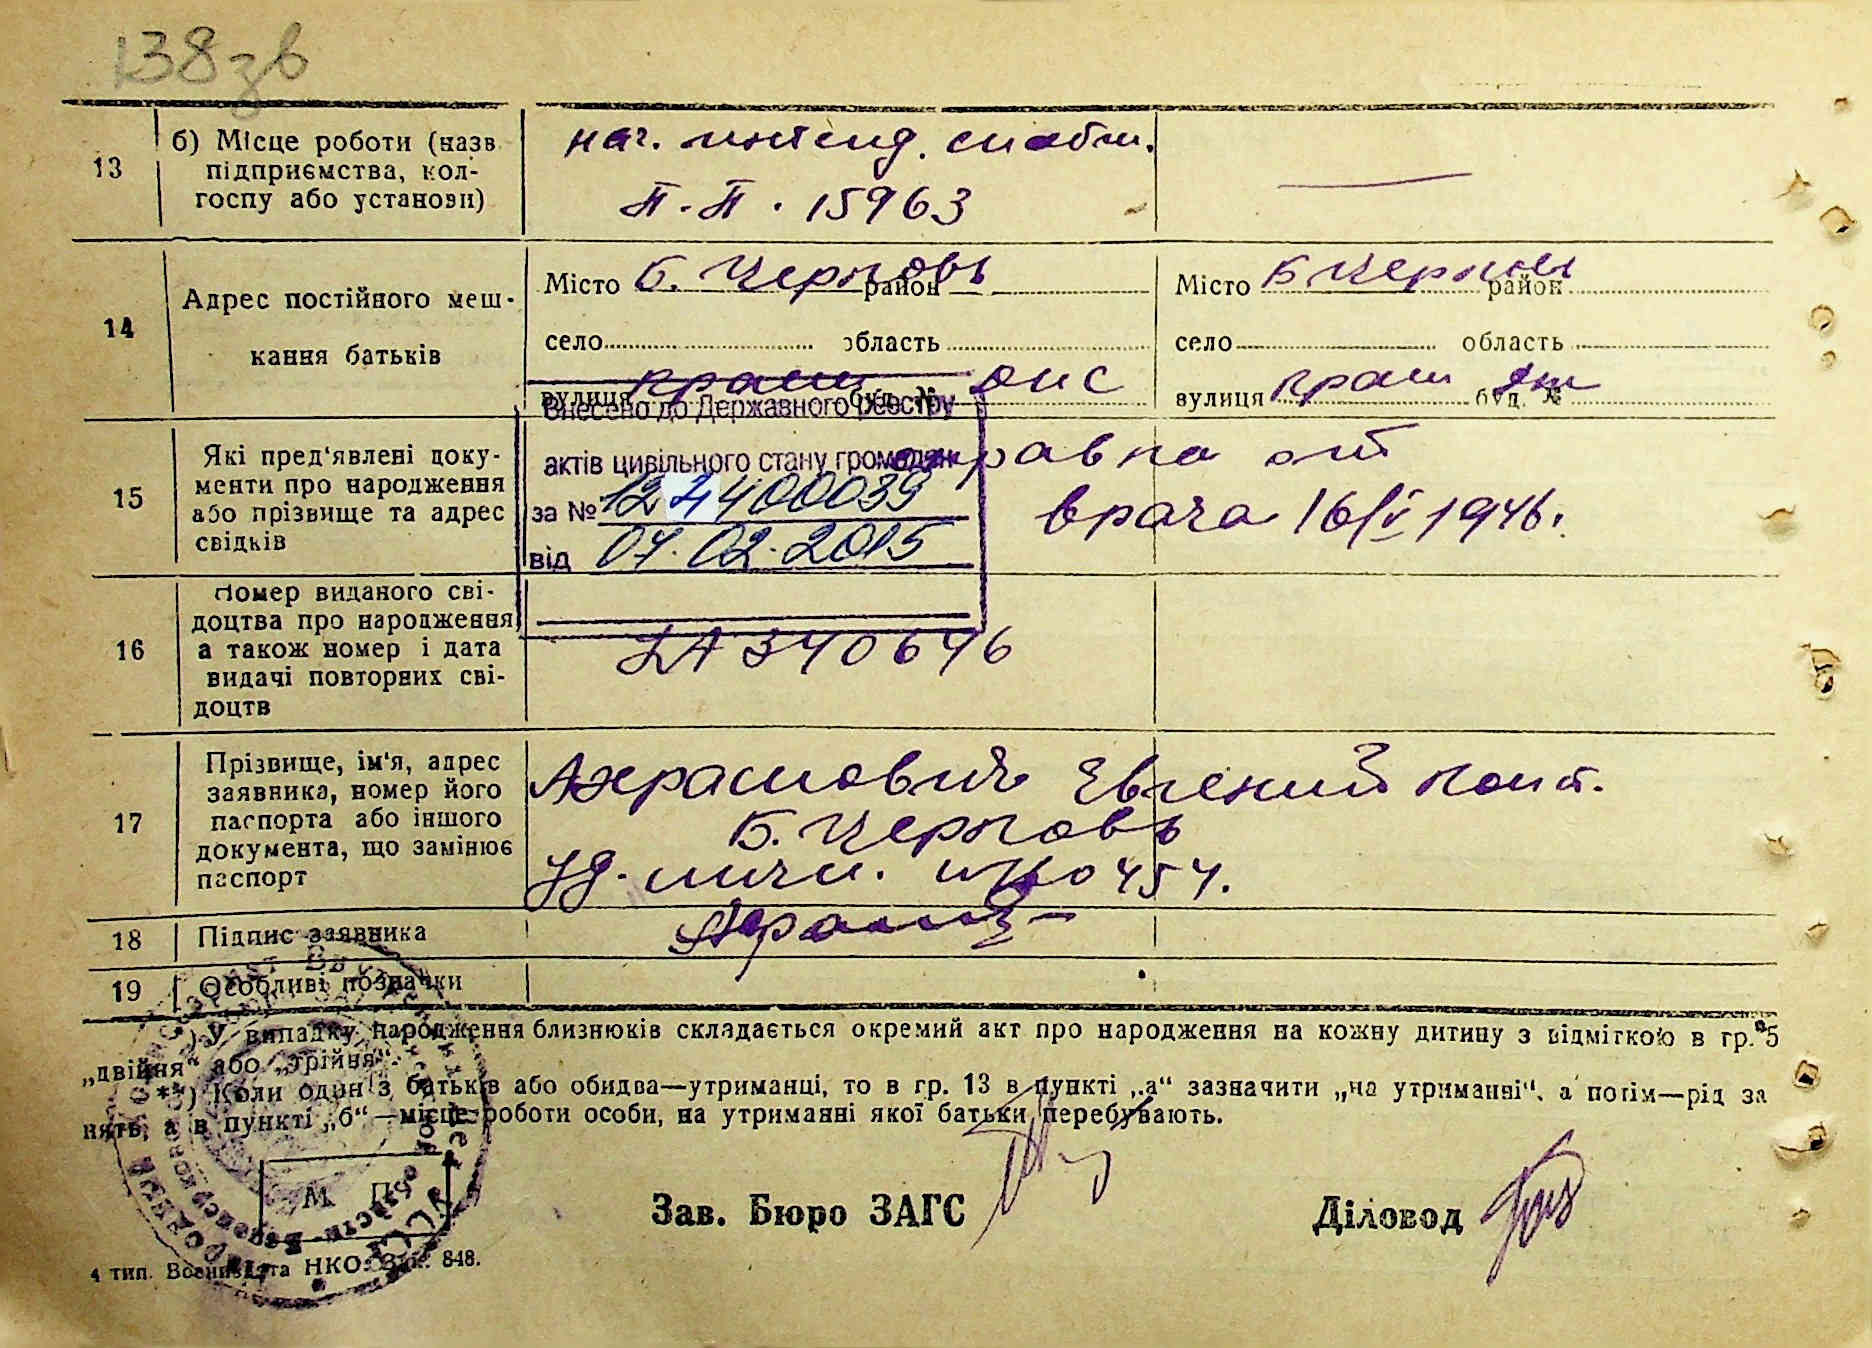 138зв
13
б) Місце роботи (назв
підприємства, кол-
госпу або установи)
нач. интенд. снабж.
П.П. 15963
14
Адрес постійного меш-
кання батьків
Місто Б. Церковь район
село область
вулиця буд. №
Місто Б Церковь район
село область
вулиця буд. №
Внесено до Державного реєстру
актів цивільного стану громадян
за № 12 4400039
від 07.02.2015
15
Які пред'явлені доку-
менти про народження
або прізвище та адрес
свідків
справка от
врача 16/V 1946.
16
Номер виданого сві-
доцтва про народження
а також номер і дата
видачі повторних сві-
доцтв
340646
17
Прізвище, ім'я, адрес
заявника, номер його
паспорта або іншого
документа, що замінює
паспорт
Евгений
Б. Церковь
Уд. личн. 0454.
18
Підпис заявника
19
Особливі позначки
*) У випадку народження близнюків складається окремий акт про народження на кожну дитину з відміткою в гр. 5
„двійня“ або „трійня“.
**) Коли один з батьків або обидва—утриманці, то в гр. 13 в пункті „а“ зазначити „на утриманні“, а потім—рід за
нять, а в пункті „б“—місце роботи особи, на утриманні якої батьки перебувають.
М. П.
Зав. Бюро ЗАГС
Діловод
4 тип. Воениздата НКО. Зак. 848.